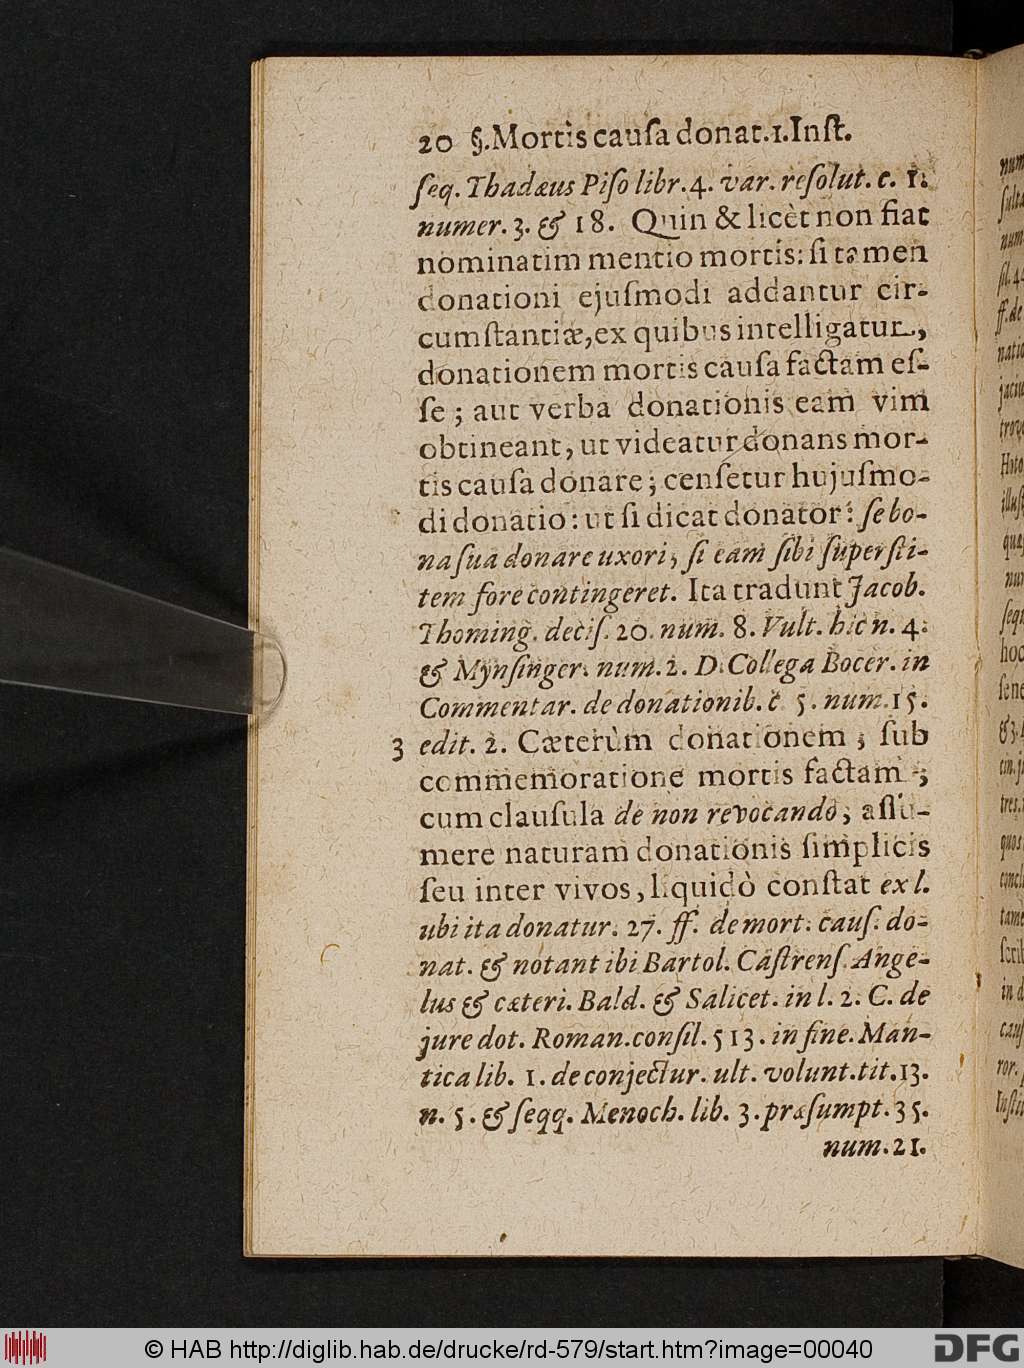 20 §.Mortis cauſa donat.1.Inſt.
ſeq. Thadæus Piſo libr.4. var. reſolut. c. 1.
numer. 3. & 18. Quin & licèt non fiat
nominatim mentio mortis: ſi tamen
donationi ejuſmodi addantur cir-
cumſtantiæ, ex quibus intelligatur,
donationem mortis cauſa factam eſ-
ſe; aut verba donationis eam vim
obtineant, ut videatur donans mor-
tis cauſa donare; cenſetur hujuſmo-
di donatio: ut ſi dicat donator: ſe bo-
na ſua donare uxori, ſi eam ſibi ſuperſti-
tem fore contingeret. Ita tradunt Jacob.
Thoming. deciſ. 20. num. 8. Vult. hîc n. 4.
& Mynſinger. num. 2. D. Collega Bocer. in
Commentar. de donationib. c. 5. num. 15.
3 edit. 2. Cæterùm donationem, ſub
commemoratione mortis factam,
cum clauſula de non revocando, aſſu-
mere naturam donationis ſimplicis
ſeu inter vivos, liquidò conſtat ex l.
ubi ita donatur. 27. ff. de mort. cauſ. do-
nat. & notant ibi Bartol. Caſtrenſ. Ange-
lus & cæteri. Bald. & Salicet. in l. 2. C. de
jure dot. Roman. conſil. 513. in fine. Man-
tica lib. 1. de conjectur. ult. volunt. tit. 13.
n. 5. & ſeqq. Menoch. lib. 3. præſumpt. 35.
num. 21.
© HAB http://diglib.hab.de/drucke/rd-579/start.htm?image=00040
DFG